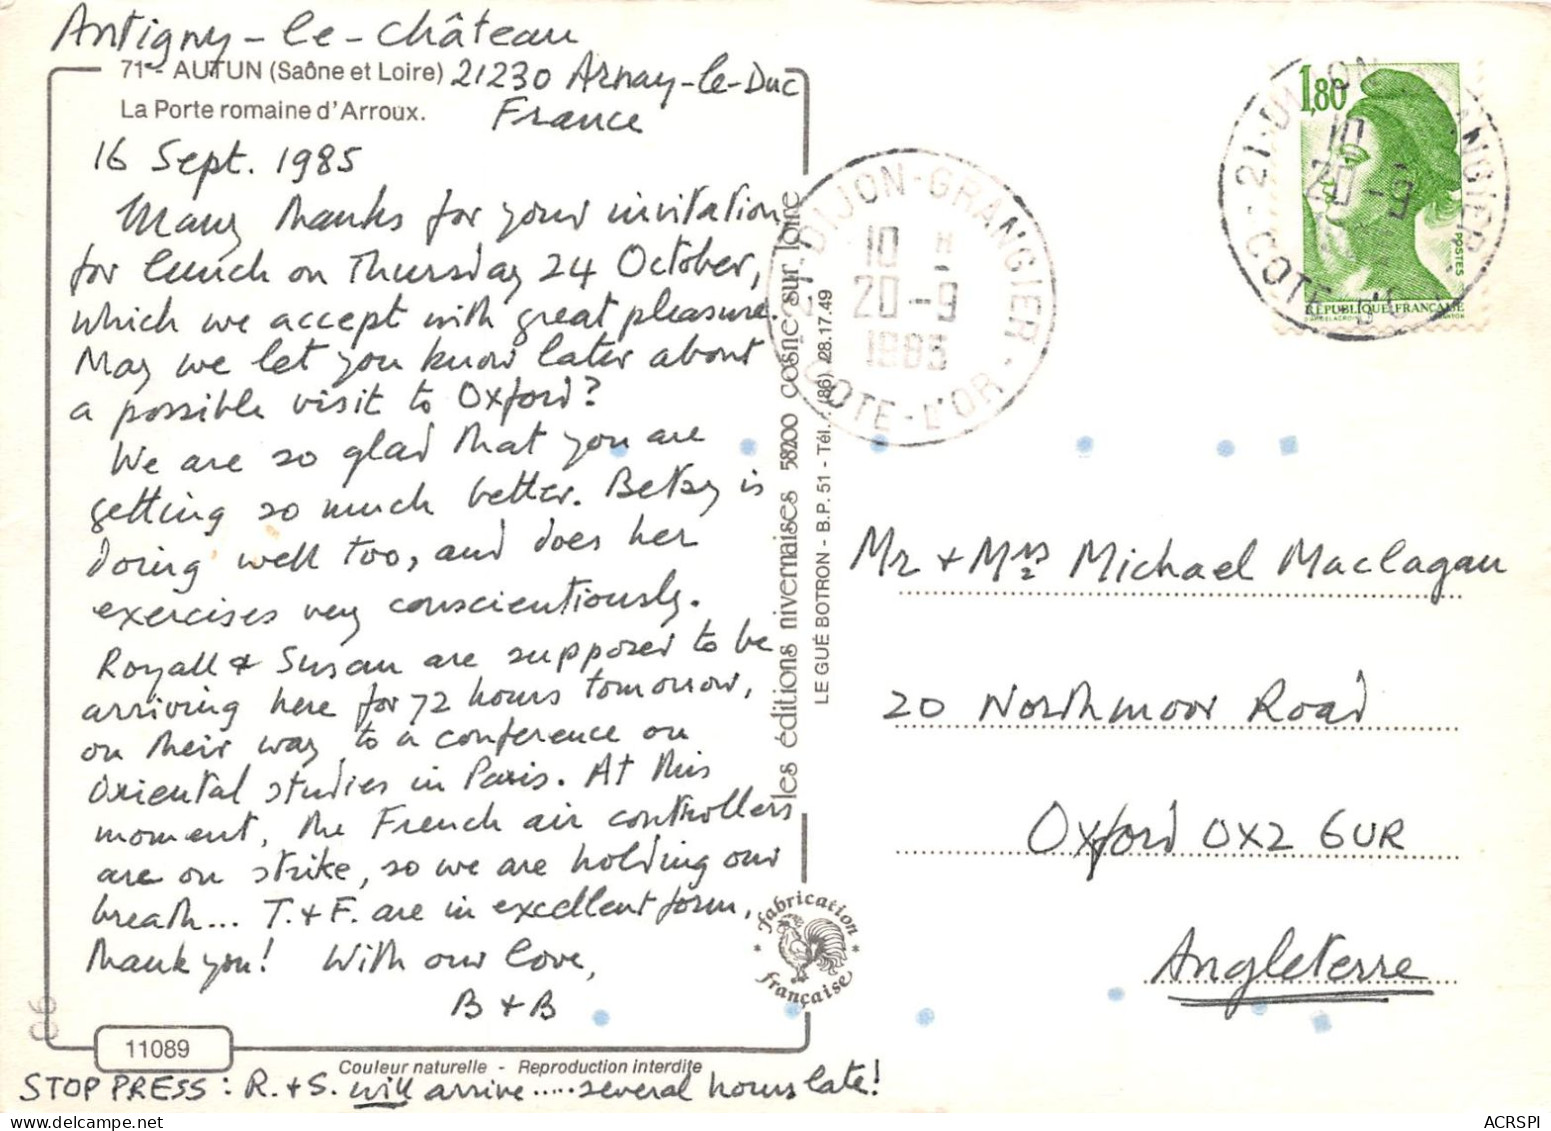 Antigny-le-château
71 - AUTUN (Saône et Loire) 21230 Arnay-le-Duc
La Porte romaine d'Arroux. France
16 Sept. 1985
Many thanks for your invitation
for lunch on Thursday 24 October,
which we accept with great pleasure.
May we let you know later about
a possible visit to Oxford?
We are so glad that you are
getting so much better. Betsy is
doing well too, and does her
exercises very conscientiously.
Royall & Susan are supposed to be
arriving here for 72 hours tomorrow,
on their way to a conference on
Oriental studies in Paris. At this
moment, the French air controllers
are on strike, so we are holding our
breath... T. & F. are in excellent form,
thank you! With our love,
B + B
11089
Couleur naturelle - Reproduction interdite
STOP PRESS: R. + S. will arrive ..... several hours late!
06
les éditions nivernaises 58200 cosne sur loire
LE GUÉ BOTRON - B.P. 51 - Tél. : (86) 28.17.49
fabrication
française
21-DIJON-GRANGIER
10 H
20-9
1985
COTE-D'OR
1,80
POSTES
RÉPUBLIQUE FRANÇAISE
21-DIJON-GRANGIER
10
20-9
COTE-D'OR
Mr + Mrs Michael Maclagan
20 Northmoor Road
Oxford OX2 6UR
Angleterre
ACRSPI